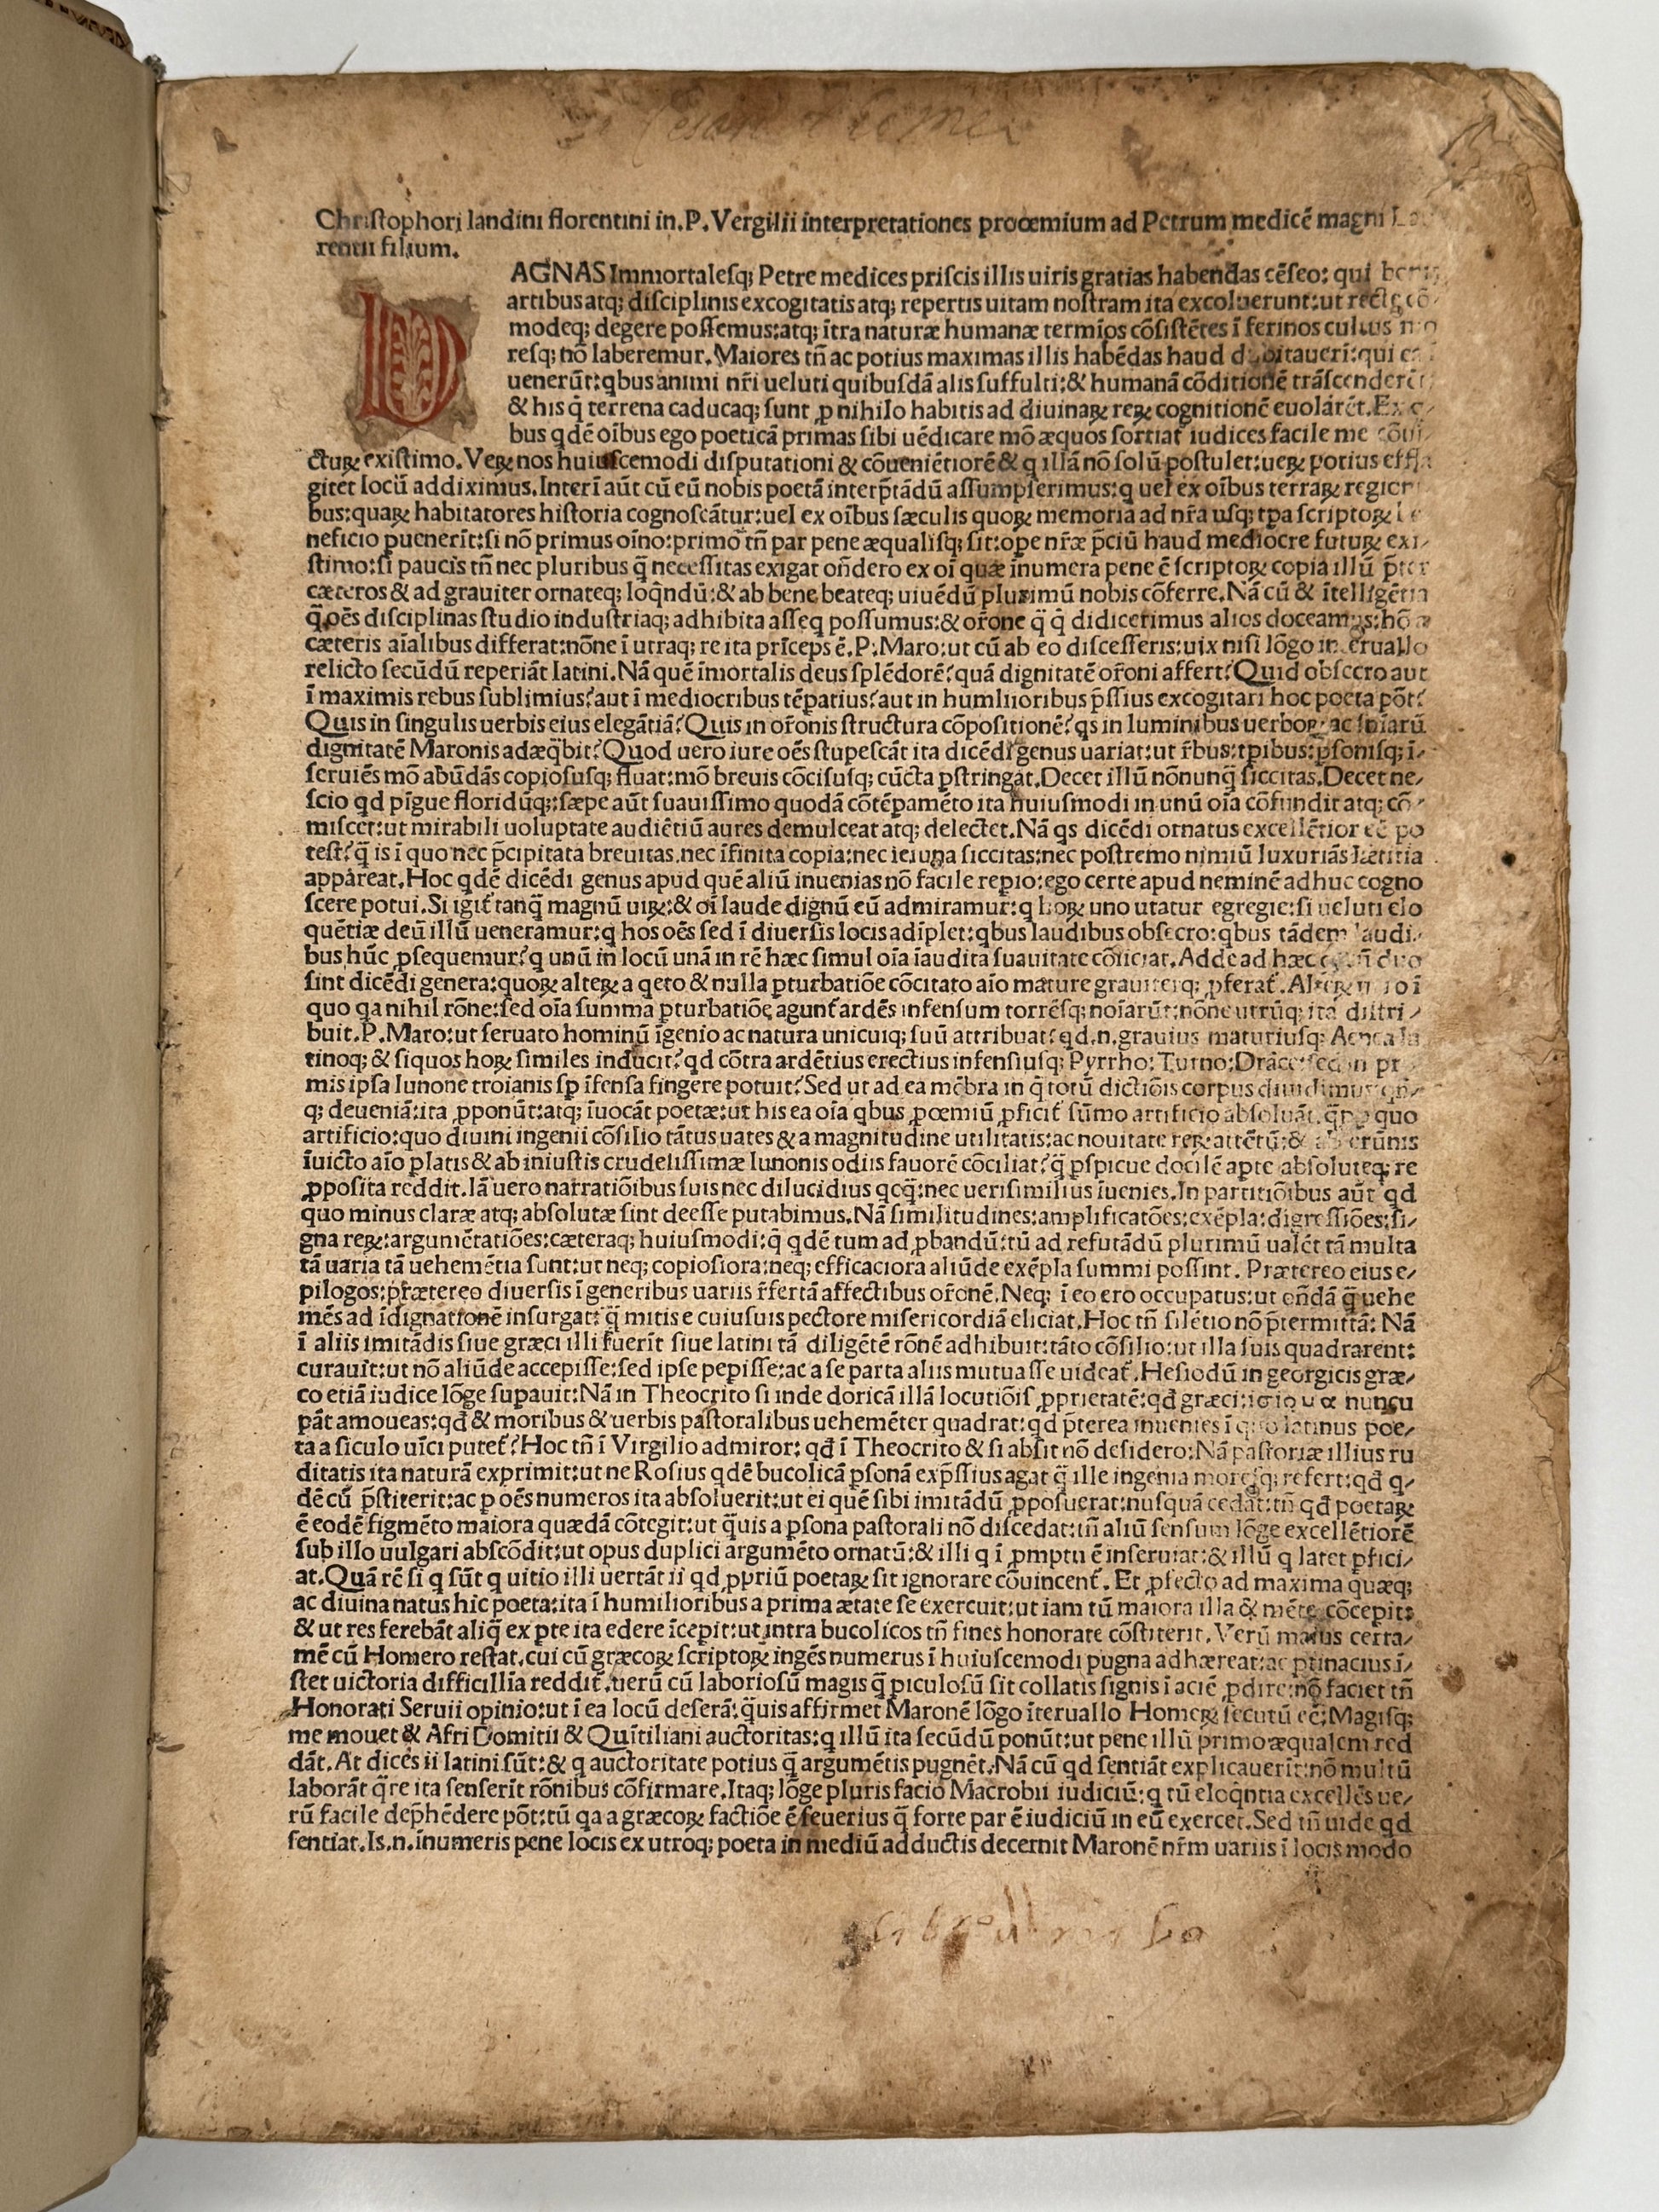 Christophori landini florentini in.P.Vergilii interpretationes prooemium ad Petrum medicē magni
rentii filium.
AGNAS Immortalesq; Petre medices priscis illis uiris gratias habendas cēseo: qui
artibus atq; disciplinis excogitatis atq; repertis uitam nostram ita excoluerunt:ut
modeq; degere possemus:atq; ītra naturæ humanæ termīos cōsistētes ī ferinos cultus
resq; nō laberemur.Maiores tñ ac potius maximas illis habēdas haud
uenerūt:qbus animi nr̄i ueluti quibusdā alis suffulti:& humanā cōditionē trāscenderēt
& his q̄ terrena caducaq; sunt ꝓ nihilo habitis ad diuinaꝝ reꝝ cognitionē euolārēt.
bus qdē oībus ego poeticā primas sibi uēdicare mō æquos sortiat̄ iudices facile me
cturꝝ existimo.Veꝝ nos huiuscemodi disputationi & cōueniētiorē & q illā nō solū postulet:ueꝝ potius
gitet locū addiximus.Interī aūt cū eū nobis poetā interp̄tādū assumpserimus:q uel ex oībus terraꝝ
bus:quaꝝ habitatores historia cognoscātur:uel ex oībus sæculis quoꝝ memoria ad nr̄a usq; tpa scriptoꝝ
neficio puenerīt:si nō primus oīno:primo tñ par pene æqualisq; sit:ope nr̄æ p̄ciū haud mediocre futuꝝ exi-
stimo:si paucis tñ nec pluribus q̄ necessitas exigat on̄dero ex oī quæ īnumera pene ē scriptoꝝ copia illū
cæteros & ad grauiter ornateq; loq̄ndū:& ab bene beateq; uiuēdū plurimū nobis cōferre.Nā cū & ītelligētia
q̄ oēs disciplinas studio industriaq; adhibita asseq possumus:& or̄one q̄ q̄ didicerimus alios doceamus:
cæteris aīalibus differat:nōne ī utraq; re ita prīceps ē.P.Maro:ut cū ab eo discesseris:uix nisi lōgo
relicto secūdū reperiāt latini.Nā quē īmortalis deus splēdorē?quā dignitatē or̄oni affert?Quid obsecro aut
ī maximis rebus sublimius?aut ī mediocribus tēpatius?aut in humlioribus p̄ssius excogitari hoc poeta pōt?
Quis in singulis uerbis eius elegātiā?Quis in or̄onis structura cōpositionē?qs in luminibus uerboꝝ ac
dignitatē Maronis adæq̄bit?Quod uero iure oēs stupescāt ita dicēdi genus uariat:ut r̄bus:tpibus:psonisq; ī-
seruiēs mō abūdās copiosusq; fluat:mō breuis cōcisusq; cūcta pstringat.Decet illū nōnunq̄ siccitas.Decet ne-
scio qd pīgue floridūq;:sæpe aūt suauissimo quodā cōtēpamēto ita huiusmodi in unū oīa cōfundit atq; cō-
miscet:ut mirabili uoluptate audiētiū aures demulceat atq; delectet.Nā qs dicēdi ornatus excellētior eē po
test?q̄ is ī quo nec p̄cipitata breuitas.nec īfinita copia:nec ieiuna siccitas:nec postremo nimiū luxuriās lætitia
appareat.Hoc qdē dicēdi genus apud quē aliū inuenias nō facile repio:ego certe apud neminē adhuc cogno
scere potui.Si igit̄ tanq̄ magnū uiꝝ:& oī laude dignū eū admiramur:q hoꝝ uno utatur egregie:si ueluti elo
quētiæ deū illū ueneramur:q hos oēs sed ī diuersis locis adīplet:qbus laudibus obsecro:qbus tādem laudi-
bus hūc ꝓsequemur?q unū in locū unā in rē hæc simul oīa īaudita suauitate cōiiciat.Adde ad hæc
sint dicēdi genera:quoꝝ alteꝝ a qeto & nulla pturbatiōe cōcitato aīo mature grauiterq; ꝓferat̄.
quo qa nihil rōne:sed oīa summa pturbatiōe agunt̄ ardēs infensum torrēsq; noīarūt:nōne utrūq; ita distri-
buit.P.Maro:ut seruato hominū īgenio ac natura unicuiq; suū attribuat?qd.n.grauius maturiusq;
tinoq; & siquos hoꝝ similes inducit?qd cōtra ardētius erectius infensiusq; Pyrrho:Turno:
mis ipsa Iunone troianis sp īfensa fingere potuit?Sed ut ad ea mēbra in q̄ totū dictiōis corpus
q; deueniā:ita ꝓponūt:atq; īuocāt poetæ:ut his ea oīa qbus ꝓœmiū pficit̄ sūmo artificio absoluāt. quo
artificio:quo diuini ingenii cōsilio tātus uates & a magnitudine utilitatis:ac nouitate reꝝ attētū:&
īuicto aīo platis & ab iniustis crudelissimæ Iunonis odiis fauorē cōciliat?q̄ pspicue docilē apte absoluteq; re
ꝓposita reddit.Iā uero narratiōibus suis nec dilucidius qcq̄:nec uerisimilius īuenies.In partitiōibus aūt qd
quo minus claræ atq; absolutæ sint deesse putabimus.Nā similitudines:amplificatōes:exēpla:digressiōes:si-
gna reꝝ:argumētatiōes:cæteraq; huiusmodi:q̄ qdē tum ad ꝓbandū:tū ad refutādū plurimū ualēt tā multa
tā uaria tā uehemētia sunt:ut neq; copiosiora:neq; efficaciora aliūde exēpla summi possint. Prætereo eius e-
pilogos:prætereo diuersis ī generibus uariis r̄fertā affectibus or̄onē.Neq; ī eo ero occupatus:ut on̄dā q̄ uehe
mēs ad īdignationē insurgat:q̄ mitis e cuiusuis pectore misericordiā eliciat.Hoc tñ silētio nō p̄termittā: Nā
ī aliis imitādis siue græci illi fuerīt siue latini tā diligētē rōnē adhibuit:tāto cōsilio:ut illa suis quadrarent:
curauit:ut nō aliūde accepisse:sed ipse pepisse:ac a se parta aliis mutuasse uideat̄.Hesiodū in georgicis græ-
co etiā iudice lōge supauit:Nā in Theocrito si inde doricā illā locutiōis ꝓprietatē:qđ græci: nuncu
pāt amoueas:qđ & moribus & uerbis pastoralibus uehemēter quadrat:qd p̄terea inuenies ī quo latinus poe-
ta a siculo uīci putet̄?Hoc tñ ī Virgilio admiror: qđ ī Theocrito & si absit nō desidero:Nā pastoriæ illius ru
ditatis ita naturā exprimit:ut ne Rosius qdē bucolicā psonā exp̄ssius agat q̄ ille ingenia moresq; refert:qđ q-
dē cū p̄stiterit:ac p oēs numeros ita absoluerit:ut ei quē sibi imitādū ꝓposuerat:nusquā cedat:tñ qđ poetaꝝ
ē eodē figmēto maiora quædā cōtegit:ut q̄uis a psona pastorali nō discedat:tñ aliū sensum lōge excellētiorē
sub illo uulgari abscōdit:ut opus duplici argumēto ornatū:& illi q ī ꝓmptu ē inseruiat:& illū q latet pfici-
at.Quā rē si q sūt q uitio illi uertāt ii qd ꝓpriū poetaꝝ sit ignorare cōuincent̄. Et ꝓfecto ad maxima quæq;
ac diuina natus hic poeta:ita ī humilioribus a prima ætate se exercuit:ut iam tū maiora illa & mēte cōcepit:
& ut res ferebāt aliq̄ ex pte ita edere īcepit:ut intra bucolicos tñ fines honorate cōstiterit.Verū maius certa-
mē cū Homero restat.cui cū græcoꝝ scriptoꝝ ingēs numerus ī huiuscemodi pugna adhæreat:ac ptinacius ī-
stet uictoria difficillīa reddit̄.uerū cū laboriosū magis q̄ piculosū sit collatis signis ī aciē ꝓdire:nō faciet tñ
Honorati Seruii opinio:ut ī ea locū deserā:q̄uis affirmet Maronē lōgo īteruallo Homeꝝ secutū eē:Magisq;
me mouet & Afri Domitii & Quītiliani auctoritas:q illū ita secūdū ponūt:ut pene illū primo æqualem red
dāt.At dices ii latini sūt:& q auctoritate potius q̄ argumētis pugnēt.Nā cū qd sentiāt explicauerīt:nō multū
laborāt q̄re ita senserīt rōnibus cōfirmare.Itaq; lōge pluris facio Macrobii iudiciū:q tū eloq̄ntia excellēs ue-
rū facile dep̄hēdere pōt:tū qa a græcoꝝ factiōe ē seuerius q̄ forte par ē iudiciū in eū exercet.Sed tñ uide qd
sentiat.Is.n.īnumeris pene locis ex utroq; poeta in mediū adductis decernit Maronē nr̄m uariis ī locis modo